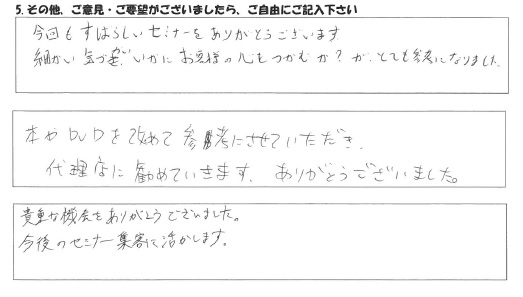 5. その他、ご意見・ご要望がございましたら、ご自由にご記入下さい
今回もすばらしいセミナーをありがとうございます
細かい気づかい、いかにお客様の心をつかむか?が、とても参考になりました
本やDVDを改めて参考にさせていただき、
代理店に勧めていきます。ありがとうございました。
貴重な機会をありがとうございました。
今後のセミナー集客に活かします。